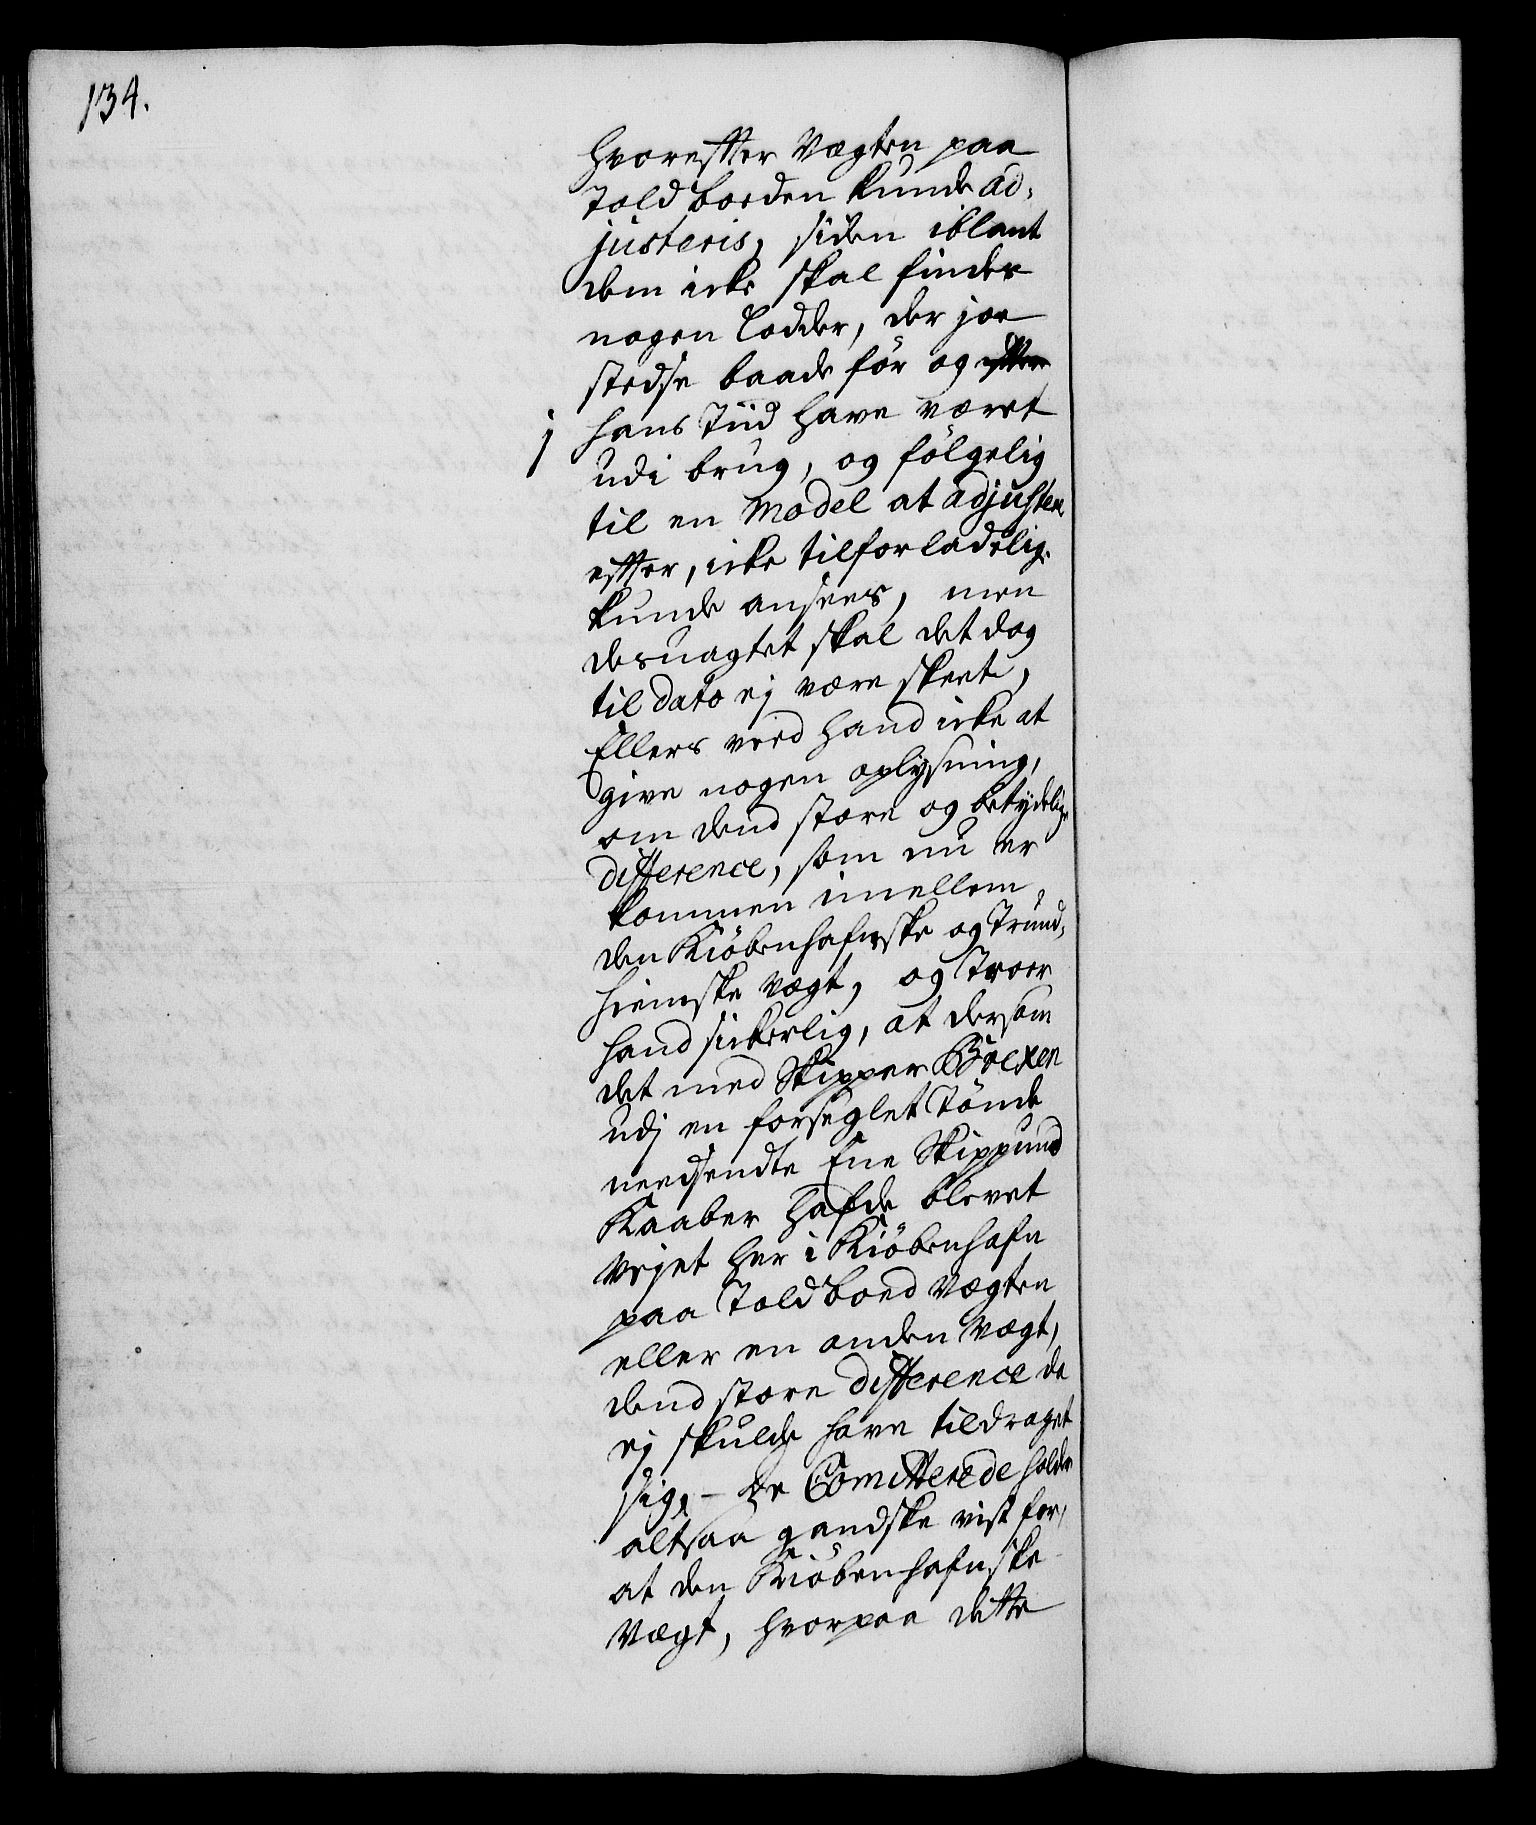 134.
hvorefter Vægten paa
Told boeden kunde ad,
justeris, siden iblant
dem icke skal findes
nogen Lodder, der joe
stedse baade för og
j hans Tiid have været
udi brug, og fölgelig
til en Model at adjustere
efter, icke tilforladelig.
kunde ansees, men
desuagtet skal det dog
til dato ej være skeet,
Ellers veed hand icke at
give nogen oplysning,
om dend store og betydelige
difference, som nu er
kommen imellem
den Kiöbenhafnske og Trund,
hiemske Vægt, og Troer
hand sickerlig, at dersom
det med Skipper Boexen
udj en forseglet Tönde
needsendte Ene Skippund
Kaaber hafde blevet
Vejet her i Kiöbenhafn
paa Told boed Vægten
eller en anden Vægt,
dend store difference da
ej skulde have tildraget
sig, - De Comitterede holder
altsaa gandske vist for,
at den Kiöbenhafnske
Vægt, hvorpaa dette